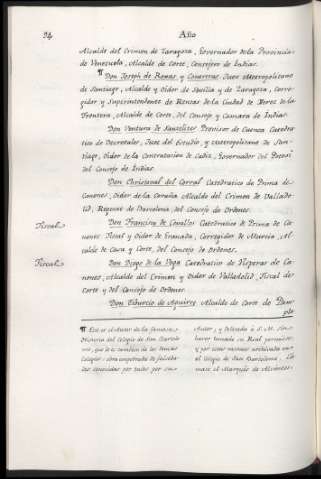 94 Año
Alcalde del Crimen de Zaragoza, Governador de la Provincia
de Venezuela, Alcalde de Corte, Consejero de Indias.
¶ Don Joseph de Roxas, y Contreras Juez Metropolitano
de Santiago, Alcalde y Oidor de Sevilla y de Zaragoza, Corre-
gidor y Superintendente de Rentas de la Ciudad de Xerez de la
Frontera, Alcalde de Corte, del Consejo y Camara de Indias.
Don Ventura de Provisor de Cuenca Catedra-
tico de Decretales, Juez del Estudio, y Metropolitano de San-
tiago, Oidor de la Contratacion de Cadiz, Governador del
del Consejo de Indias.
Don Christoval del Corral Catedratico de Prima de
Canones, Oidor de la Coruña Alcalde del Crimen de Vallado-
lid, Regente de Barcelona, del Consejo de Ordenes.
Fiscal Don Francisco de Cevallos Catedratico de Prima de Ca-
nones Fiscal y Oidor de Granada, Corregidor de Murcia, Al-
calde de Casa y Corte, del Consejo de Ordenes.
Fiscal Don Diego de la Vega Catedratico de Visperas de Ca-
nones, Alcalde del Crimen y Oidor de Valladolid, Fiscal de
Corte y del Consejo de Ordenes.
Don Tiburcio de Aguirre, Alcalde de Corte de Pam-
plo
¶ Este es el Autor de la famosa
Historia del Colegio de San Bartolo
mé, que lo es tambien de los demas
Colegios: obra de falseda-
des conocidas por todos por su
Autor, y á S. M. sin
haver tomado su Real permiso:
y por estos meritos archivada en
el Colegio de San Bartolomé. La
el Marqués de Alventos.